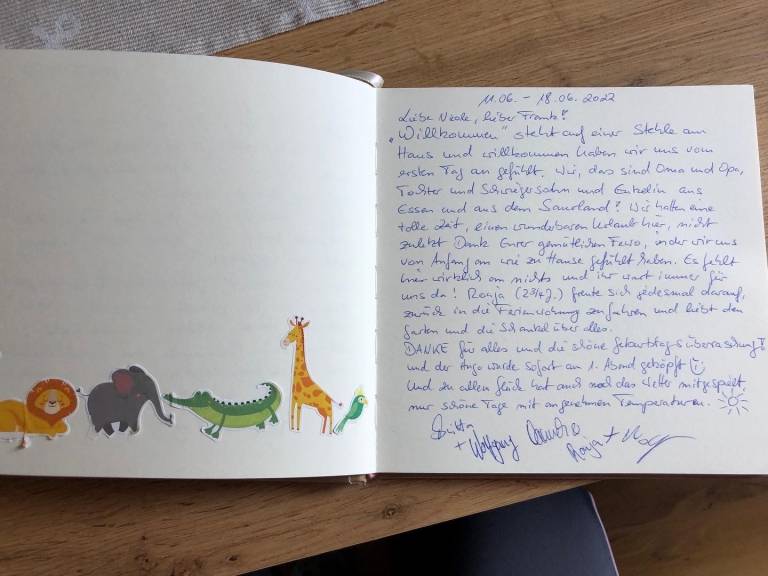 11.06. - 18.06.2022
Liebe Nicole, lieber Frank!
„Willkommen" steht auf einer Stehle am
Haus und willkommen haben wir uns vom
ersten Tag an gefühlt. Wir, das sind Oma und Opa,
Tochter und Schwiegersohn und Enkelin aus
Essen und aus dem Sauerland! Wir hatten eine
tolle Zeit, einen wunderbaren Urlaub hier, nicht
zuletzt Dank Eurer gemütlichen Fewo, in der wir uns
von Anfang an wie zu Hause gefühlt haben. Es fehlt
hier wirklich an nichts und ihr wart immer für
uns da! Ronja (2 3/4 J.) freute sich jedesmal darauf,
zurück in die Ferienwohnung zu fahren und liebt den
Garten und die Schaukel über alles.
DANKE für alles und die schöne Geburtstagsüberraschung!
und der Hugo wurde sofort am 1. Abend geköpft
Und zu allem Glück hat auch noch das Wetter mitgespielt,
nur schöne Tage mit angenehmen Temperaturen.
+ Wolfgang
Ronja +